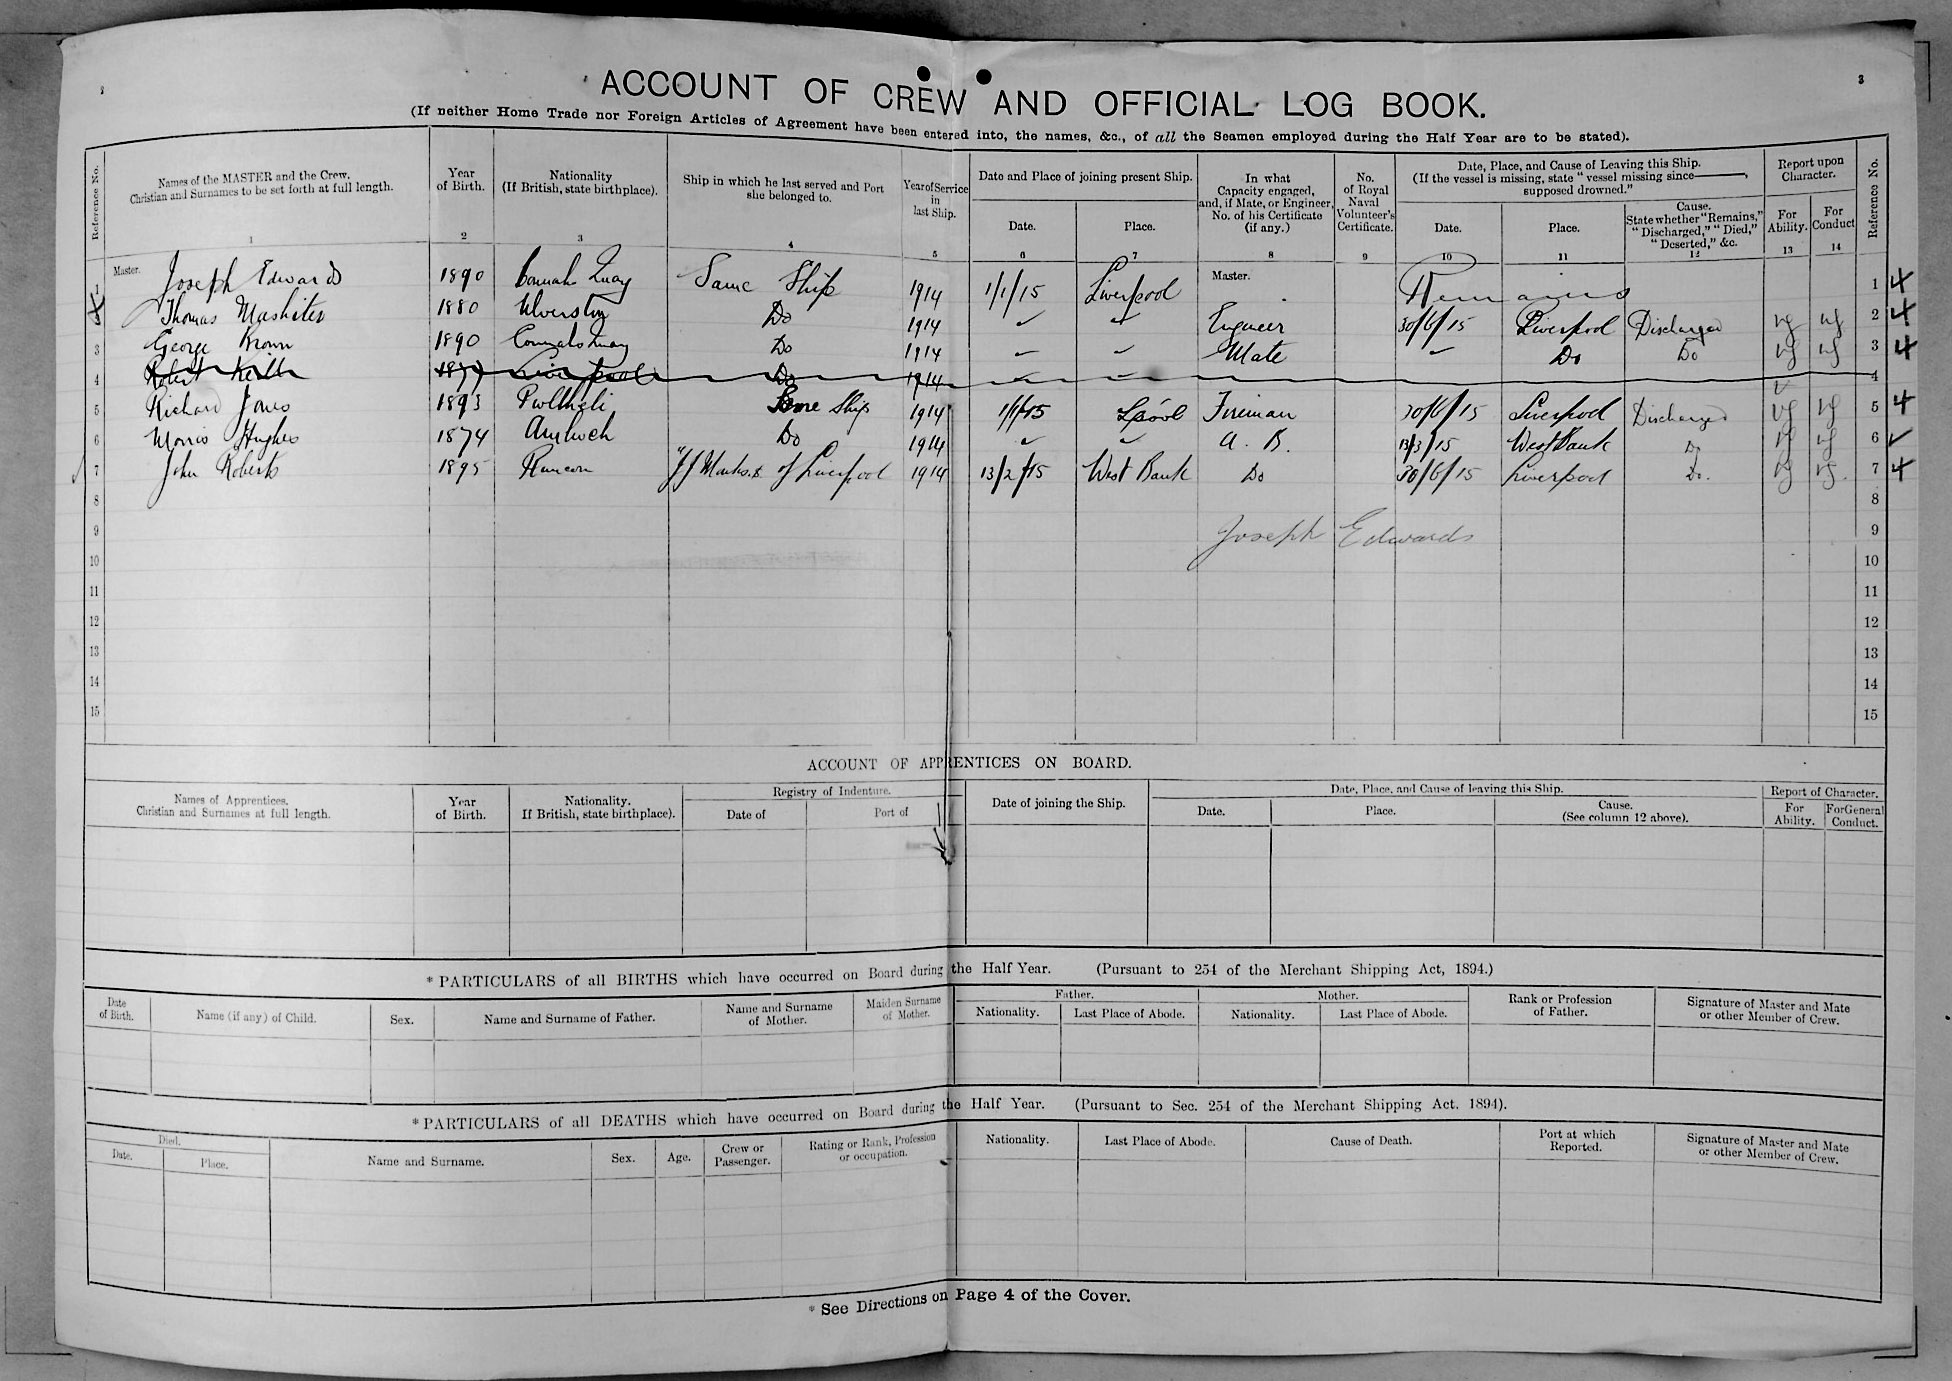 2
3
ACCOUNT OF CREW AND OFFICIAL LOG BOOK.
(If neither Home Trade nor Foreign Articles of Agreement have been entered into, the names, &c., of all the Seamen employed during the Half Year are to be stated).
Reference No. Names of the MASTER and the Crew. Christian and Surnames to be set forth at full length. Year of Birth. Nationality (If British, state birthplace). Ship in which he last served and Port she belonged to. Year of Service in last Ship. Date and Place of joining present Ship. Date. Place. In what Capacity engaged, and, if Mate, or Engineer, No. of his Certificate (if any.) No. of Royal Naval Volunteer's Certificate. Date, Place, and Cause of Leaving this Ship. (If the vessel is missing, state "vessel missing since———, supposed drowned." Date. Place. Cause. State whether "Remains," "Discharged," "Died," "Deserted," &c. Report upon Character. For Ability. For Conduct Reference No.
1 2 3 4 5 6 7 8 9 10 11 12 13 14
1 Master. Joseph Edwards 1890 Connah Quay Same Ship 1914 1/1/15 Liverpool Master. Remains 1
Thomas Mashiter 1880 Ulverston Do 1914 Engineer 30/6/15 Liverpool Discharged vg vg 2
3 George Brown 1890 Connahs Quay Do 1914 Mate Do Do vg vg 3
4 Robert Keill 1877 Liverpool Do 1914 4
5 Richard Jones 1893 Pwllheli Same Ship 1914 1/1/15 L'pool Fireman 30/6/15 Liverpool Discharged vg vg 5
6 Morris Hughes 1874 Amlwch Do 1914 A. B. 13/3/15 West Bank Do vg vg 6
7 John Roberts 1895 Runcorn of Liverpool 1914 13/2/15 West Bank Do 30/6/15 Liverpool Do. vg vg 7
8 8
9 Joseph Edwards 9
10 10
11 11
12 12
13 13
14 14
15 15
ACCOUNT OF APPRENTICES ON BOARD.
Names of Apprentices. Christian and Surnames at full length. Year of Birth. Nationality. If British, state birthplace). Registry of Indenture. Date of Port of Date of joining the Ship. Date, Place, and Cause of leaving this Ship. Date. Place. Cause. (See column 12 above). Report of Character. For Ability. For General Conduct.
* PARTICULARS of all BIRTHS which have occurred on Board during the Half Year. (Pursuant to 254 of the Merchant Shipping Act, 1894.)
Date of Birth. Name (if any) of Child. Sex. Name and Surname of Father. Name and Surname of Mother. Maiden Surname of Mother. Father. Nationality. Last Place of Abode. Mother. Nationality. Last Place of Abode. Rank or Profession of Father. Signature of Master and Mate or other Member of Crew.
* PARTICULARS of all DEATHS which have occurred on Board during the Half Year. (Pursuant to Sec. 254 of the Merchant Shipping Act. 1894).
Died. Date. Place. Name and Surname. Sex. Age. Crew or Passenger. Rating or Rank, Profession or occupation. Nationality. Last Place of Abode. Cause of Death. Port at which Reported. Signature of Master and Mate or other Member of Crew.
* See Directions on Page 4 of the Cover.